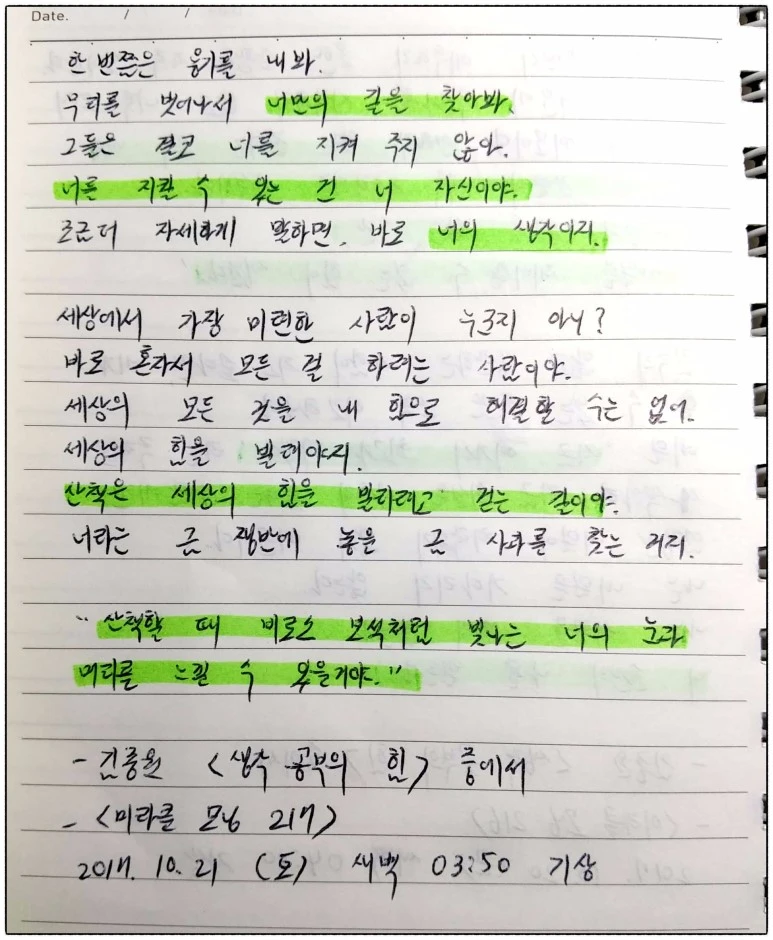 Date. / /
한 번쯤은 용기를 내 봐.
무리를 벗어나서 너만의 길을 찾아봐.
그들은 결코 너를 지켜 주지 않아.
너를 지킬 수 있는 건 너 자신이야.
조금 더 자세하게 말하면, 바로 너의 생각이지.
세상에서 가장 미련한 사람이 누군지 아니?
바로 혼자서 모든 걸 하려는 사람이야.
세상의 모든 것을 내 힘으로 해결할 수는 없어.
세상의 힘을 빌려야지.
산책은 세상의 힘을 빌리려고 걷는 길이야.
너라는 금 쟁반에 놓을 금 사과를 찾는 거지.
"산책할 때 비로소 보석처럼 빛나는 너의 눈과
미래를 느낄 수 있을거야."
- 김종원 <생각 공부의 힘> 중에서
- <미라클 모닝 217>
2017. 10. 21 (토) 새벽 03:50 기상